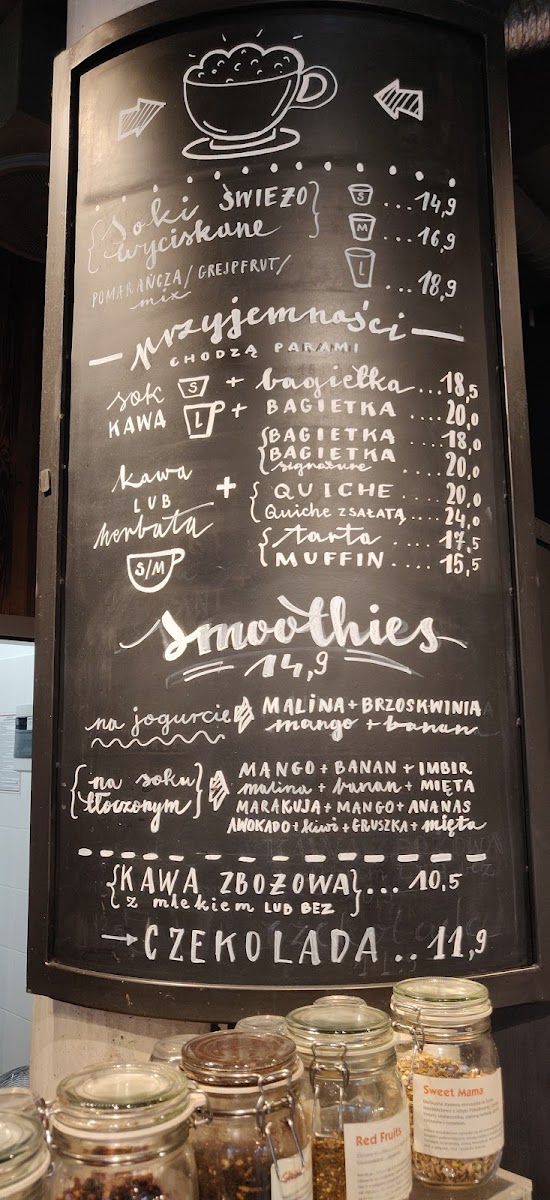 Soki ŚWIEŻO
wyciskane
POMARAŃCZA/GREJPFRUT/
mix
S ...14,9
M ...16,9
L ...18,9
przyjemności
CHODZĄ PARAMI
sok S + bagietka...18,5
KAWA L + BAGIETKA ....20,0
kawa
LUB
herbata
S/M
+
BAGIETKA ....18,0
BAGIETKA
signature ....20,0
QUICHE ....20,0
Quiche Z SAŁATĄ....24,0
tarta ....17,5
MUFFIN ....15,5
Smoothies
14,9
na jogurcie
MALINA+BRZOSKWINIA
mango + banan
na soku
tłoczonym
MANGO + BANAN + IMBIR
malina + banan + MIĘTA
MARAKUJA + MANGO + ANANAS
AWOKADO + kiwi + GRUSZKA + mięta
KAWA ZBOŻOWA ... 10,5
z mlekiem LUB BEZ
CZEKOLADA .. 11,9
Sweet Mama
Red Fruits